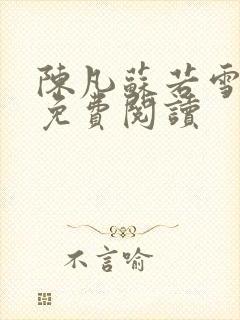 陳凡蘇若雪
免費閱讀
不言喻